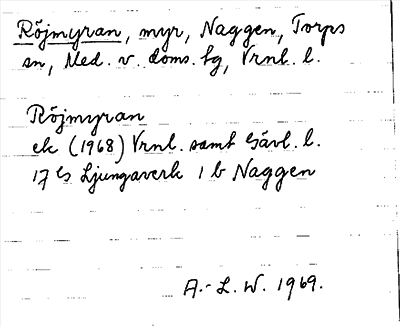 Röjmyran, myr, Naggen, Torps
sn, Med. v. doms. tg, Vrnl. l.
Röjmyran
ek (1968) Vrnl. samt Gävl. l.
17 Es Ljungaverk 1 b Naggen
A.-L. W. 1969.